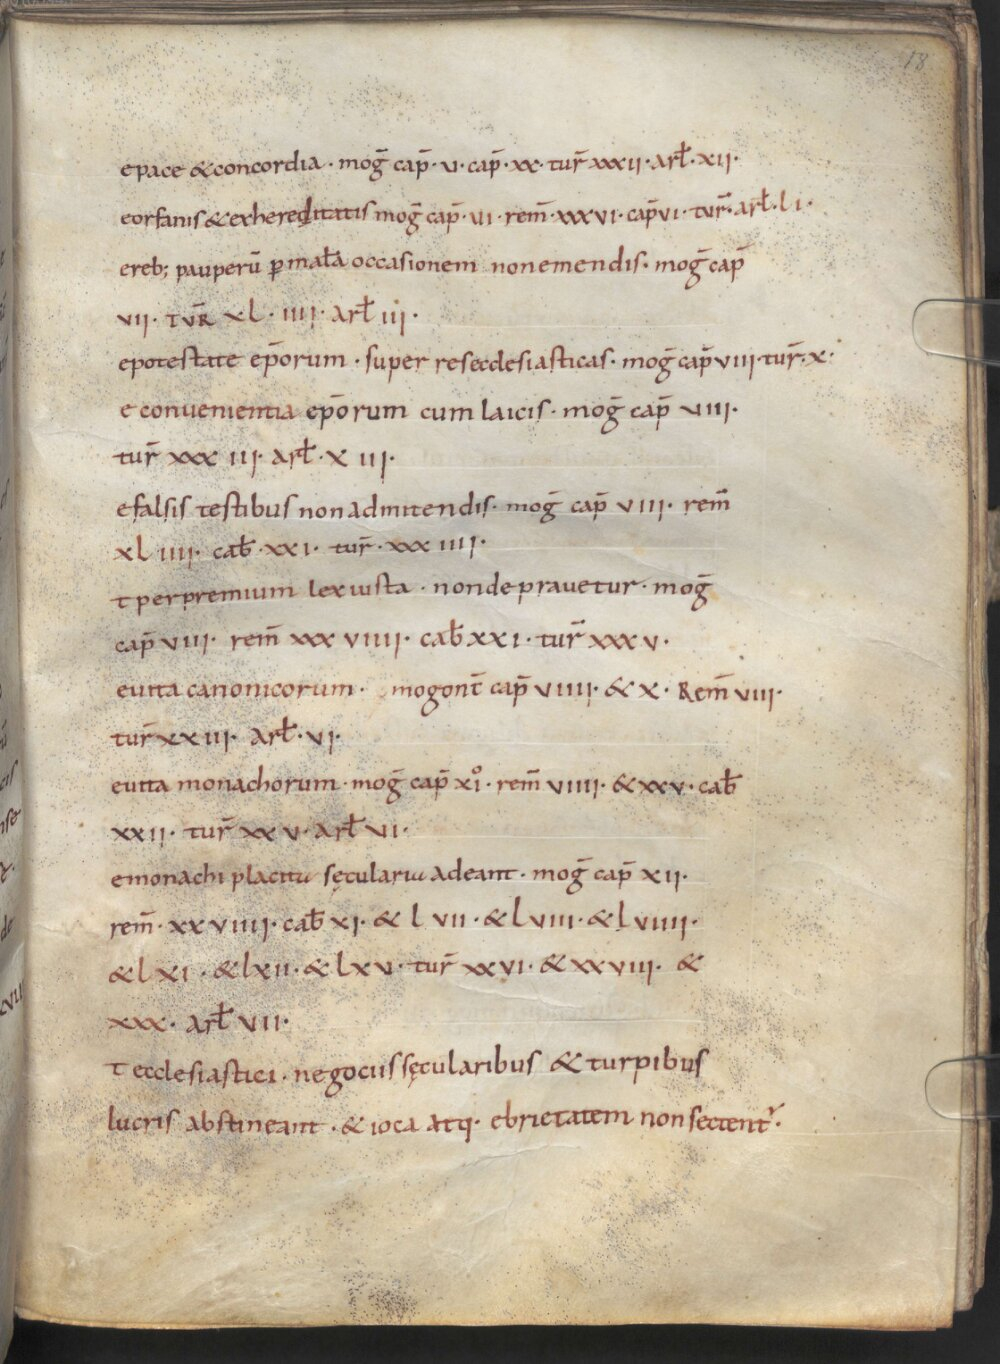 18
epace & concordia · mog̅ cap̅ · v · cap̅ · xx · tur̅ xxxii · arł · xii ·
eorfanis & exhereditatis mog̅ cap̅ · vi · rem̅ · xxxvi · cap̅ vi · tur̅ · arł · l i ·
ereb; pauperū ꝑ mala occasionem non emendis · mog̅ cap̅
vii · tur̅ xl · iiii · arł iii ·
epotestate ep̅orum · super res ecclesiasticas · mog̅ cap̅ viii · tur̅ · x ·
e conuenientia ep̅orum cum laicis · mog̅ cap̅ viii ·
tur̅ xxx iii · arł · x iii ·
efalsis testibus non admitendis · mog̅ cap̅ viii · rem̅
xl iiii · cab̅ · xxi · tur̅ · xxx iiii ·
t per premium lex iusta · non deprauetur · mog̅
cap̅ viii · rem̅ xxx viiii · cab̅ xxi · tur̅ xxx v ·
euita canonicorum · mogont̅ cap̅ viiii · & x · Rem̅ viii ·
tur̅ xx iii · arł · vi ·
euita monachorum · mog̅ cap̅ xi° · rem̅ viiii · & xxv · cab̅
xxii · tur̅ xx v · arł vi ·
emonachi placitu sęculariu adeant · mog̅ cap̅ xii ·
rem̅ · xx viiii · cab̅ xi · & l vii · & l viii · & l viiii ·
& l xi · & lxii · & lxv · tur̅ xxvi · & xxviii · &
xxx · arł vii ·
t ecclesiastici · negociis sęcularibus & turpibus
lucris abstineant · & ioca atq· ebrietatem non sectent᷑ ·